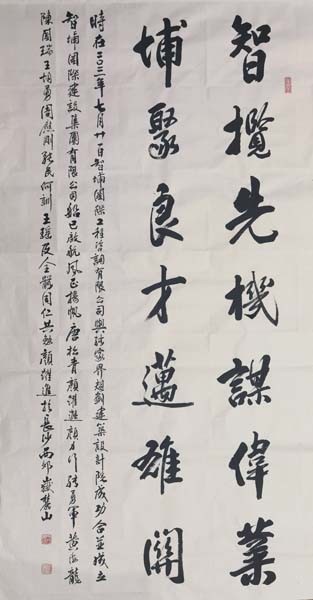 智攬先機謀偉業
埔聚良才邁雄關
時在二〇二三年七月廿一日智埔國際工程咨詢有限公司與張家界超勤建築設計院成功合並成立
智埔國際建設集團有限公司船已啟航風正揚帆唐松青顏躍進顏力行張勇軍黃海龍
陳國瑞王胡勇周應剛張民何訓王瑤及全體同仁共勉顏躍進於長沙西郊嶽麓山